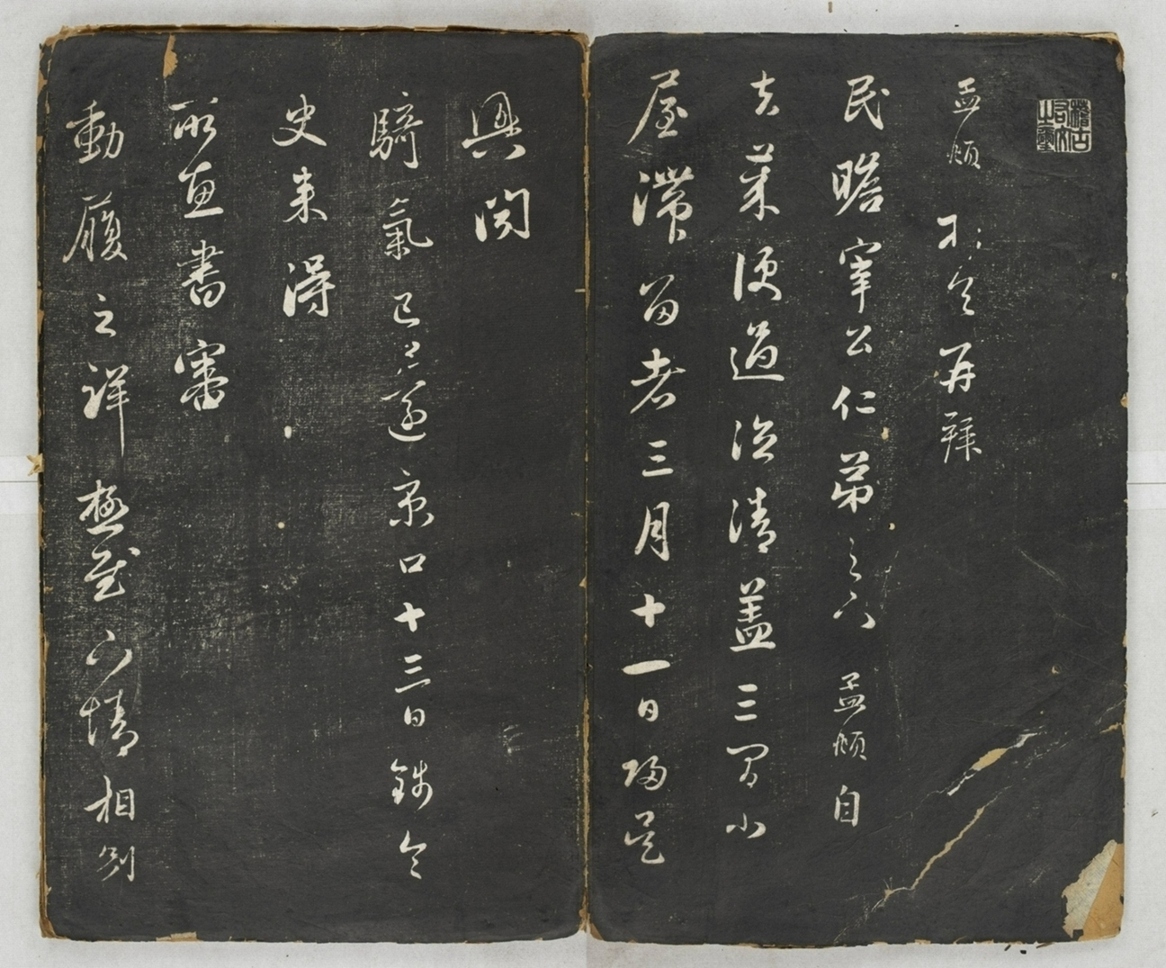 孟頫 頓首 再拜
民瞻宰公仁弟足下 孟頫自
去萊便過德清蓋三間小
屋滯留者三月十一日歸吳
興聞
騎氣已還京口十三日錢令
史來得
所惠書審
動履之詳極慰下情相別